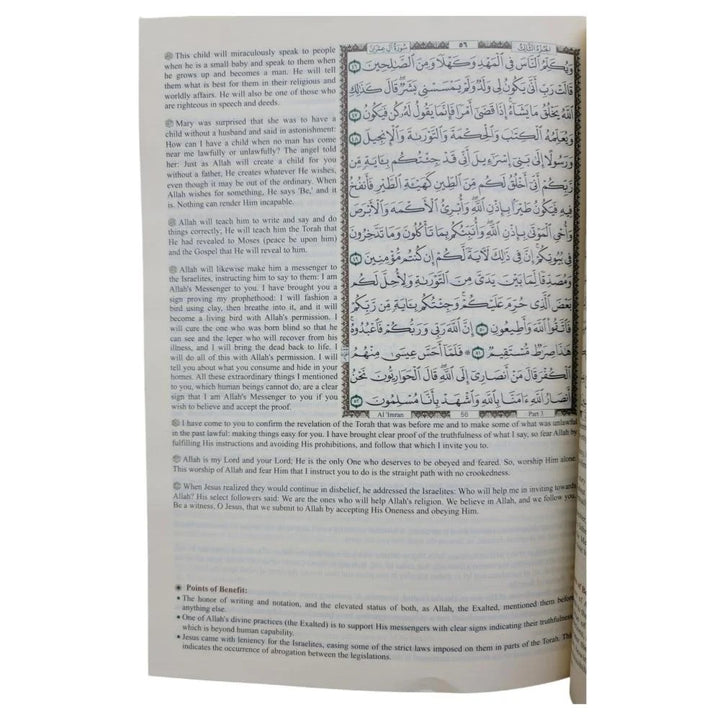 This child will miraculously speak to people
when he is a small baby and speak to them when
he grows up and becomes a man. He will tell
them what is best for them in their religious and
worldly affairs. He will also be one of those who
are righteous in speech and deeds.
Mary was surprised that she was to have a
child without a husband and said in astonishment:
How can I have a child when no man has come
near me lawfully or unlawfully? The angel told
her: Just as Allah will create a child for you
without a father, He creates whatever He wishes,
even though it may be out of the ordinary. When
Allah wishes for something, He says 'Be,' and it
is. Nothing can render Him incapable.
Allah will teach him to write and say and do
things correctly; He will teach him the Torah that
He had revealed to Moses (peace be upon him)
and the Gospel that He will reveal to him.
Allah will likewise make him a messenger to
the Israelites, instructing him to say to them: I am
Allah's Messenger to you. I have brought you a
sign proving my prophethood: I will fashion a
bird using clay, then breathe into it, and it will
become a living bird with Allah's permission. I
will cure the one who was born blind so that he
can see and the leper who will recover from his
illness, and I will bring the dead back to life. I
will do all of this with Allah's permission. I will
tell you about what you consume and hide in your
homes. All these extraordinary things I mentioned
to you, which human beings cannot do, are a clear
sign that I am Allah's Messenger to you if you
wish to believe and accept the proof.
الجزء الثالث ٥٦ سورة آل عمران
وَيُكَلِّمُ ٱلنَّاسَ فِي ٱلْمَهْدِ وَكَهْلًا وَمِنَ ٱلصَّٰلِحِينَ ٤٦
قَالَتْ رَبِّ أَنَّىٰ يَكُونُ لِي وَلَدٌ وَلَمْ يَمْسَسْنِي بَشَرٌ قَالَ كَذَٰلِكِ
ٱللَّهُ يَخْلُقُ مَا يَشَآءُ إِذَا قَضَىٰٓ أَمْرًا فَإِنَّمَا يَقُولُ لَهُۥ كُن فَيَكُونُ ٤٧
وَيُعَلِّمُهُ ٱلْكِتَٰبَ وَٱلْحِكْمَةَ وَٱلتَّوْرَىٰةَ وَٱلْإِنجِيلَ ٤٨
وَرَسُولًا إِلَىٰ بَنِيٓ إِسْرَٰٓءِيلَ أَنِّي قَدْ جِئْتُكُم بِـَٔايَةٍ مِّن
رَّبِّكُمْ أَنِّيٓ أَخْلُقُ لَكُم مِّنَ ٱلطِّينِ كَهَيْـَٔةِ ٱلطَّيْرِ فَأَنفُخُ
فِيهِ فَيَكُونُ طَيْرًۢا بِإِذْنِ ٱللَّهِ وَأُبْرِئُ ٱلْأَكْمَهَ وَٱلْأَبْرَصَ
وَأُحْيِ ٱلْمَوْتَىٰ بِإِذْنِ ٱللَّهِ وَأُنَبِّئُكُم بِمَا تَأْكُلُونَ وَمَا تَدَّخِرُونَ
فِي بُيُوتِكُمْ إِنَّ فِي ذَٰلِكَ لَـَٔايَةً لَّكُمْ إِن كُنتُم مُّؤْمِنِينَ ٤٩
وَمُصَدِّقًا لِّمَا بَيْنَ يَدَيَّ مِنَ ٱلتَّوْرَىٰةِ وَلِأُحِلَّ لَكُم
بَعْضَ ٱلَّذِي حُرِّمَ عَلَيْكُمْ وَجِئْتُكُم بِـَٔايَةٍ مِّن رَّبِّكُمْ
فَٱتَّقُوا۟ ٱللَّهَ وَأَطِيعُونِ ٥٠ إِنَّ ٱللَّهَ رَبِّي وَرَبُّكُمْ فَٱعْبُدُوهُ
هَٰذَا صِرَٰطٌ مُّسْتَقِيمٌ ٥١ ۞ فَلَمَّآ أَحَسَّ عِيسَىٰ مِنْهُمُ
ٱلْكُفْرَ قَالَ مَنْ أَنصَارِيٓ إِلَى ٱللَّهِ قَالَ ٱلْحَوَارِيُّونَ نَحْنُ
أَنصَارُ ٱللَّهِ ءَامَنَّا بِٱللَّهِ وَٱشْهَدْ بِأَنَّا مُسْلِمُونَ ٥٢
Al 'Imran 56 Part 3
I have come to you to confirm the revelation of the Torah that was before me and to make some of what was unlawful
in the past lawful: making things easy for you. I have brought clear proof of the truthfulness of what I say, so fear Allah by
fulfilling His instructions and avoiding His prohibitions, and follow that which I invite you to.
Allah is my Lord and your Lord; He is the only One who deserves to be obeyed and feared. So, worship Him alone.
This worship of Allah and fear Him that I instruct you to do is the straight path with no crookedness.
When Jesus realized they would continue in disbelief, he addressed the Israelites: Who will help me in inviting towards
Allah? His select followers said: We are the ones who will help Allah's religion. We believe in Allah, and we follow you.
Be a witness, O Jesus, that we submit to Allah by accepting His Oneness and obeying Him.
Points of Benefit:
• The honor of writing and notation, and the elevated status of both, as Allah, the Exalted, mentioned them before
anything else.
• One of Allah's divine practices (the Exalted) is to support His messengers with clear signs indicating their truthfulness,
which is beyond human capability.
• Jesus came with leniency for the Israelites, easing some of the strict laws imposed on them in parts of the Torah. This
indicates the occurrence of abrogation between the legislations.